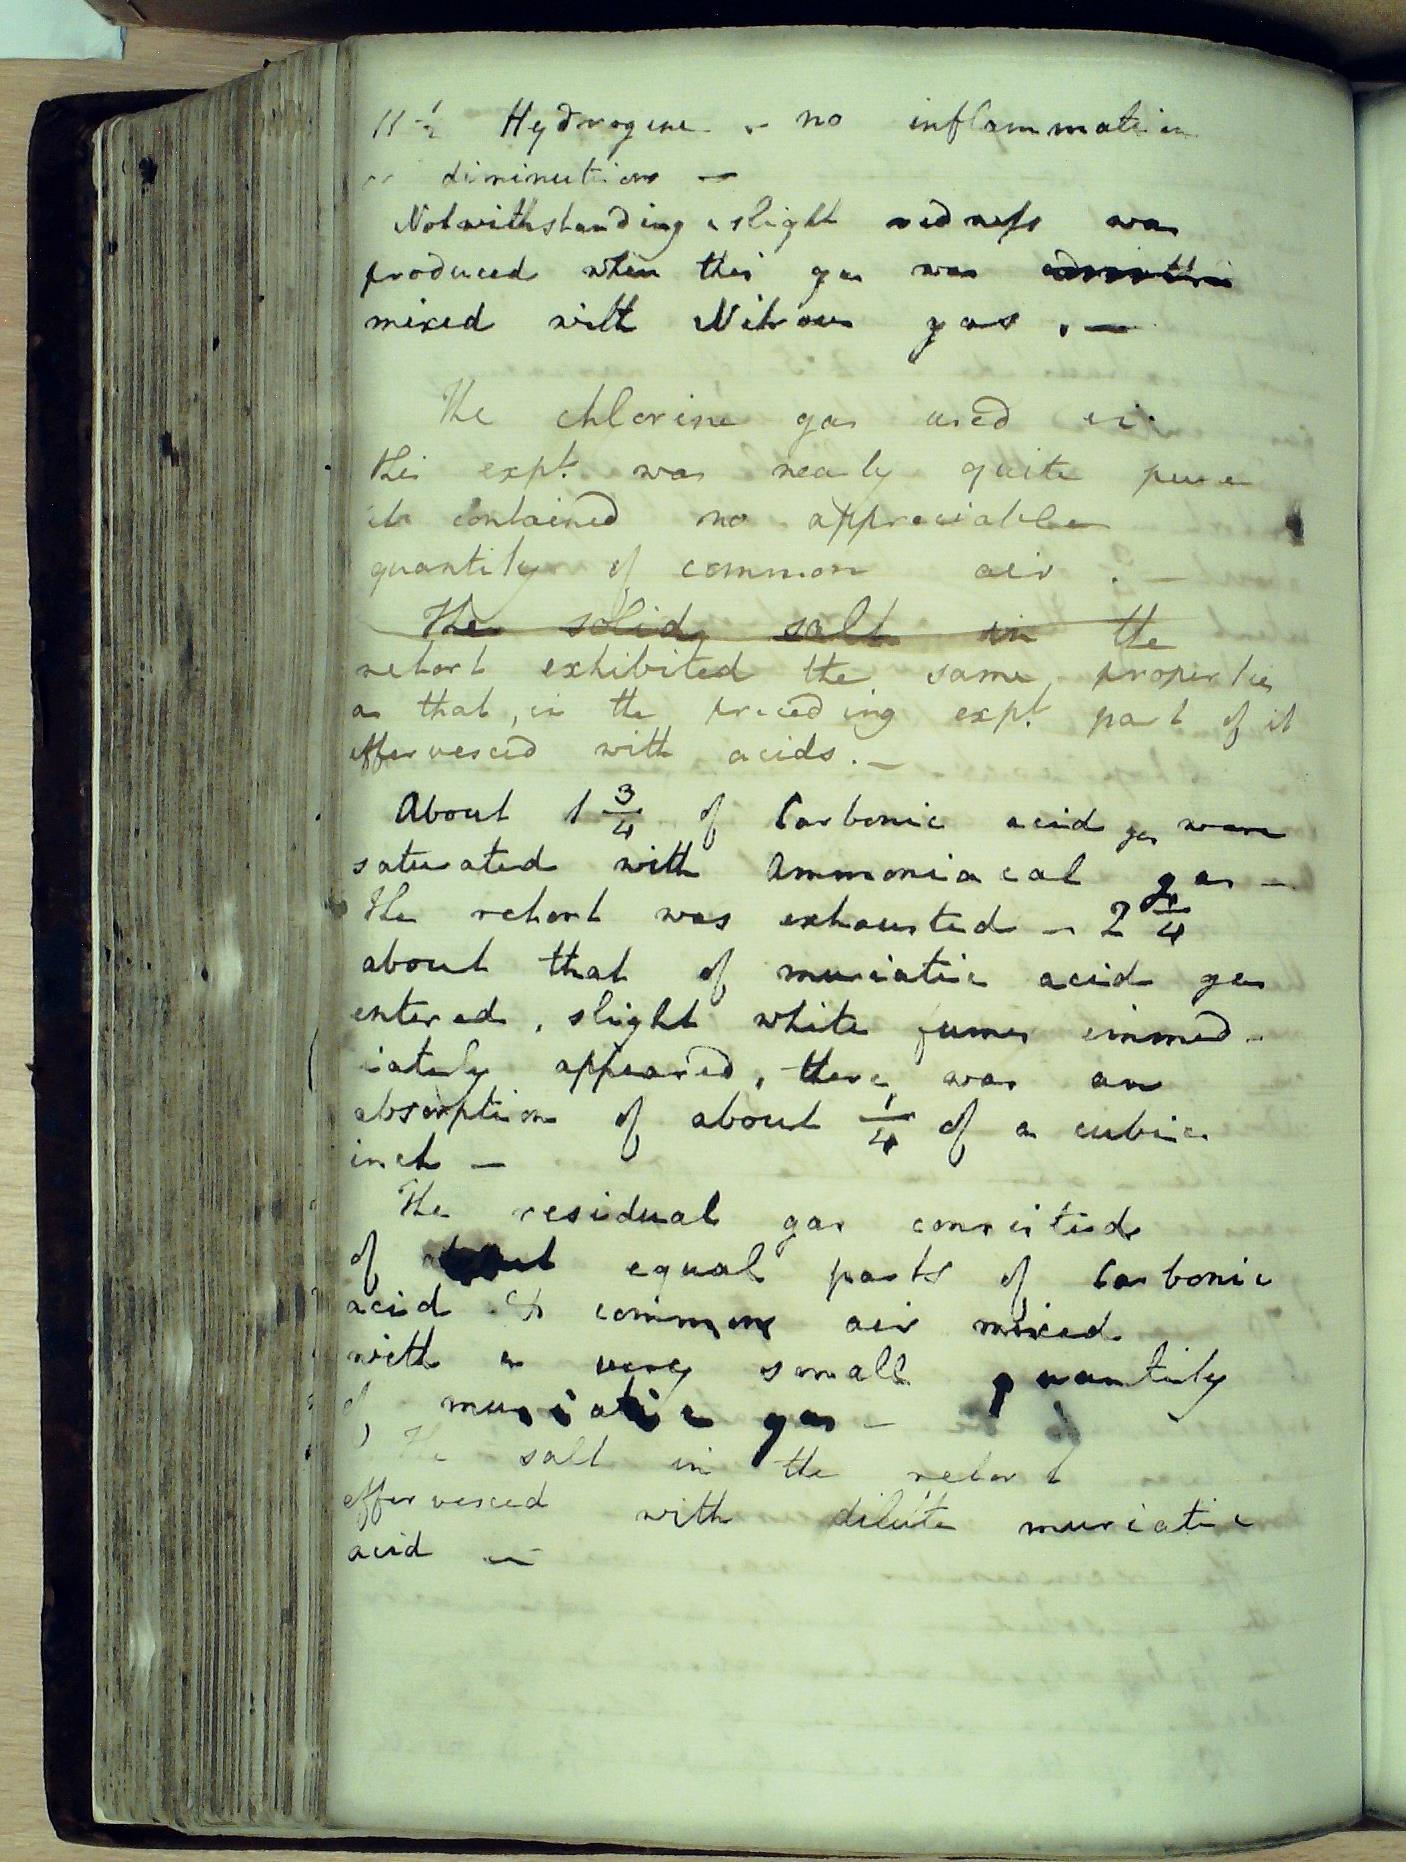 11 1/2 Hydrogene - no inflammation
or diminution —
Notwithstanding a slight redness was
produced when this gas was
mixed with Nitrous gas . —
The chlorine gas used in
this expt. was nearly quite pure
it contained no appreciable
quantity of common air . —
The solid salt in the
retort exhibited the same properties
as that, in the preceding expt part of it
effervesced with acids. —
About 1 3/4 of Carbonic acid gas were
saturated with Ammoniacal gas —
The retort was exhausted — 2
about that of muriatic acid gas
entered, slight white fumes immed-
iately appeared, there was an
absorption of about 1/4 of a cubic
inch —
The residual gas consisted
of about equal parts of Carbonic
acid & common air mixed
with a very small quantity
of muriatic gas —
The salt in the retort
effervesced with dilute muriatic
acid —